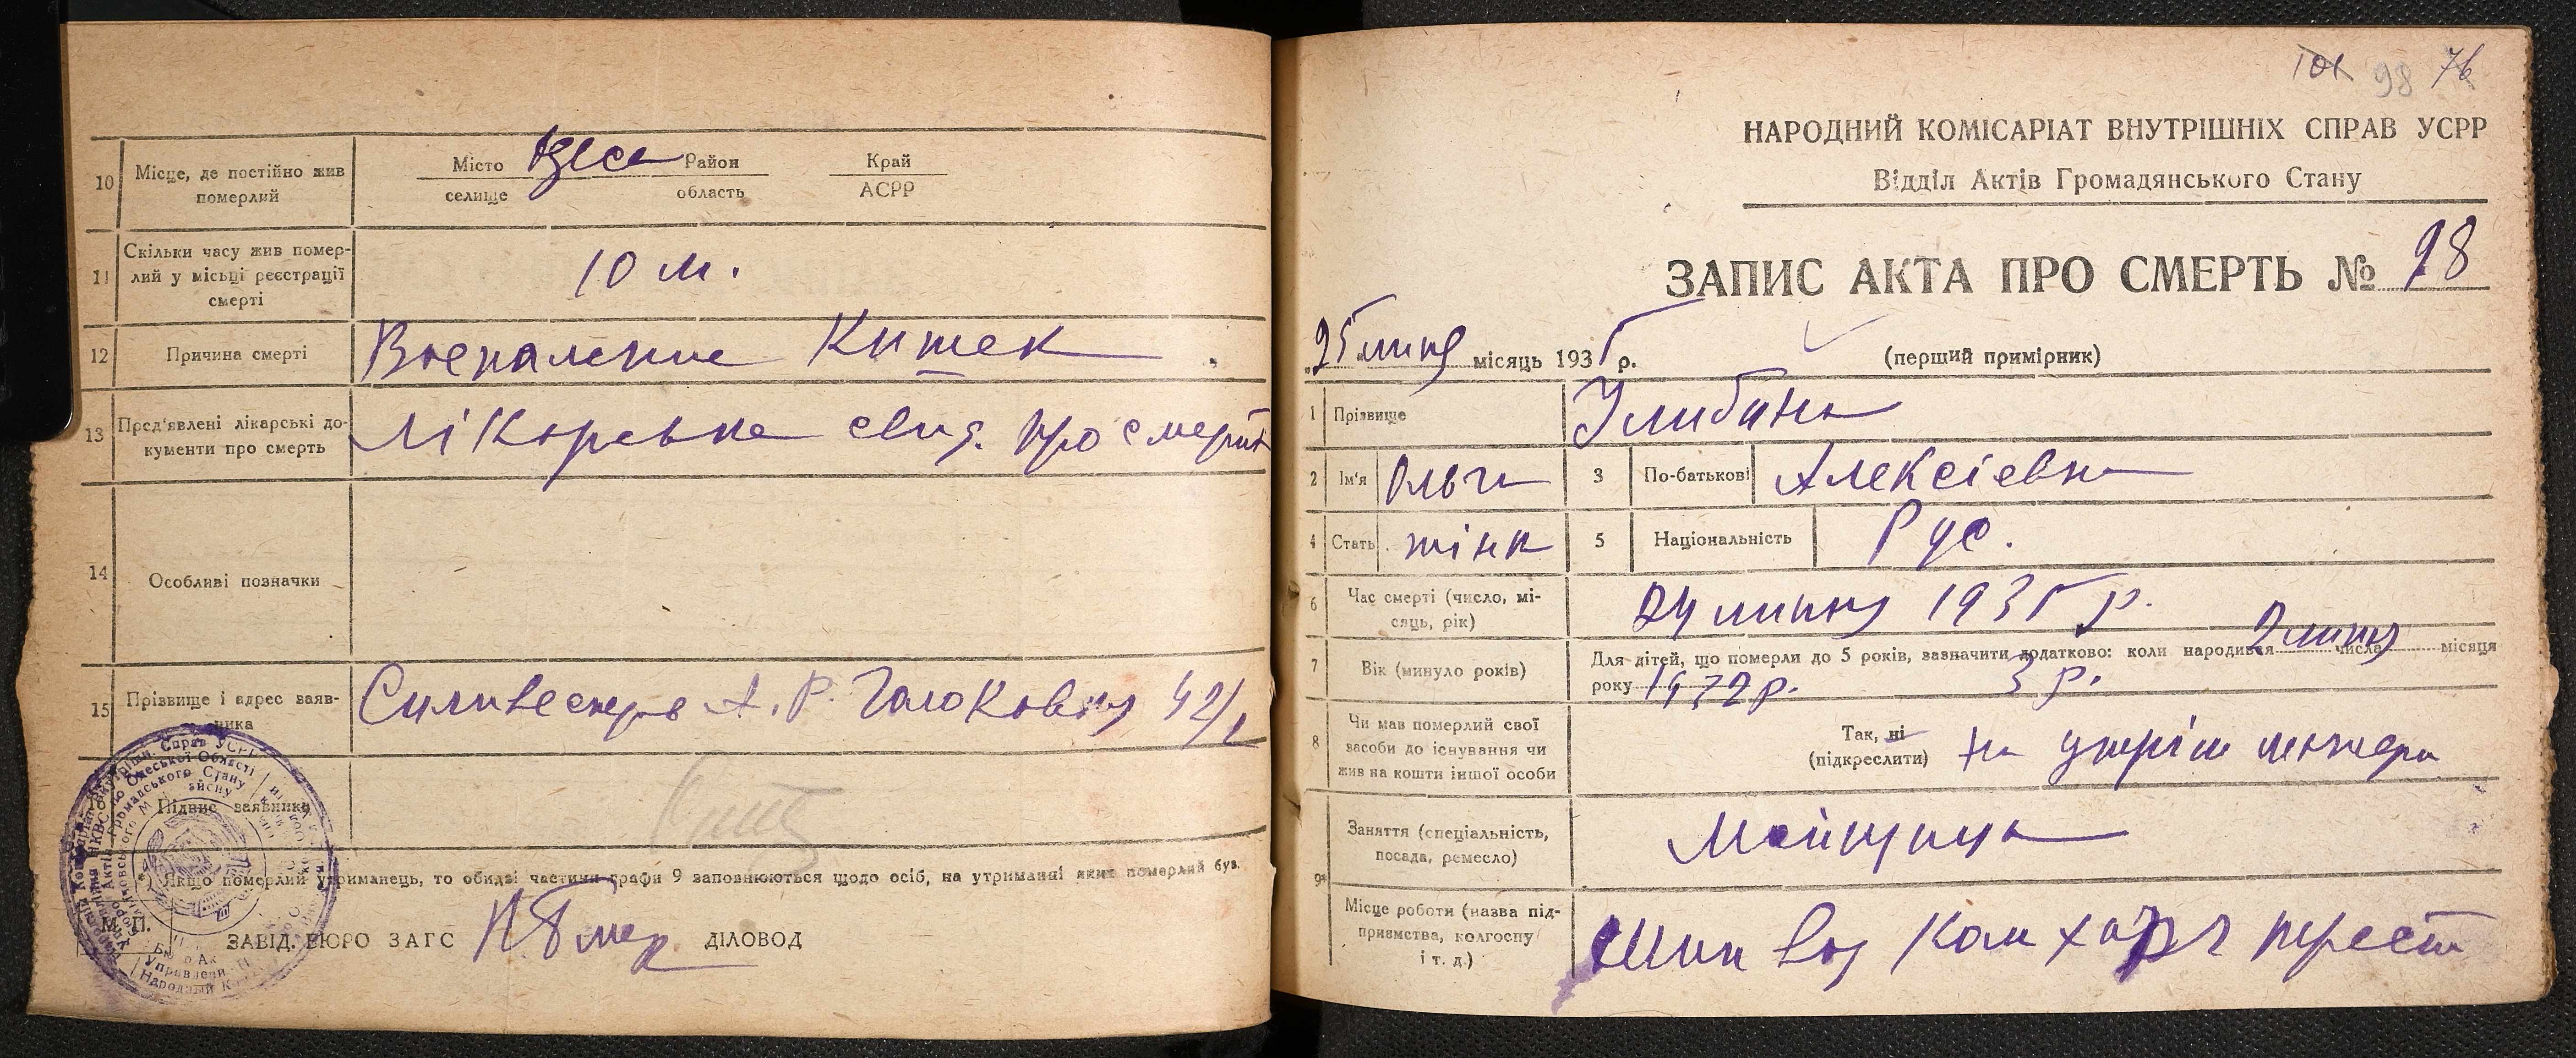 10 Місце, де постійно жив
померлий
Місто Одеса Район Край
селище область АСРР
11 Скільки часу жив помер-
лий у місьці реєстрації
смерті
10 м.
12 Причина смерті Воспаление Кишек
13 Пред'явлені лікарські до-
кументи про смерть
Лікарська свид. про смерть
14 Особливі позначки
15 Прізвище і адрес заяв-
ника
А. Р. 42/
Підпис заявника
Якщо померлий утриманець, то обидві частини графи 9 заповнюються щодо осіб, на утриманні яких померлий був.
М. П. ЗАВІД. БЮРО ЗАГС ДІЛОВОД
101 98 76
НАРОДНИЙ КОМІСАРІАТ ВНУТРІШНІХ СПРАВ УСРР
Відділ Актів Громадянського Стану
ЗАПИС АКТА ПРО СМЕРТЬ № 98
25 липня місяць 1935 р. (перший примірник)
1 Прізвище Улибина
2 Ім'я Ольга 3 По-батькові Алексієвна
4 Стать жінк 5 Національність Рус.
6 Час смерті (число, мі-
сяць, рік)
24 липня 1935 р.
7 Вік (минуло років)
Для дітей, що померли до 5 років, зазначити додатково: коли народився 2 числа липня місяця
року 1932 р. 3 р.
8 Чи мав померлий свої
засоби до існування чи
жив на кошти іншої особи
Так, ні
(підкреслити)
на утрім матери
9* Заняття (спеціальність,
посада, ремесло)
Мойщица
Місце роботи (назва під-
приємства, колгоспу
і т. д.)